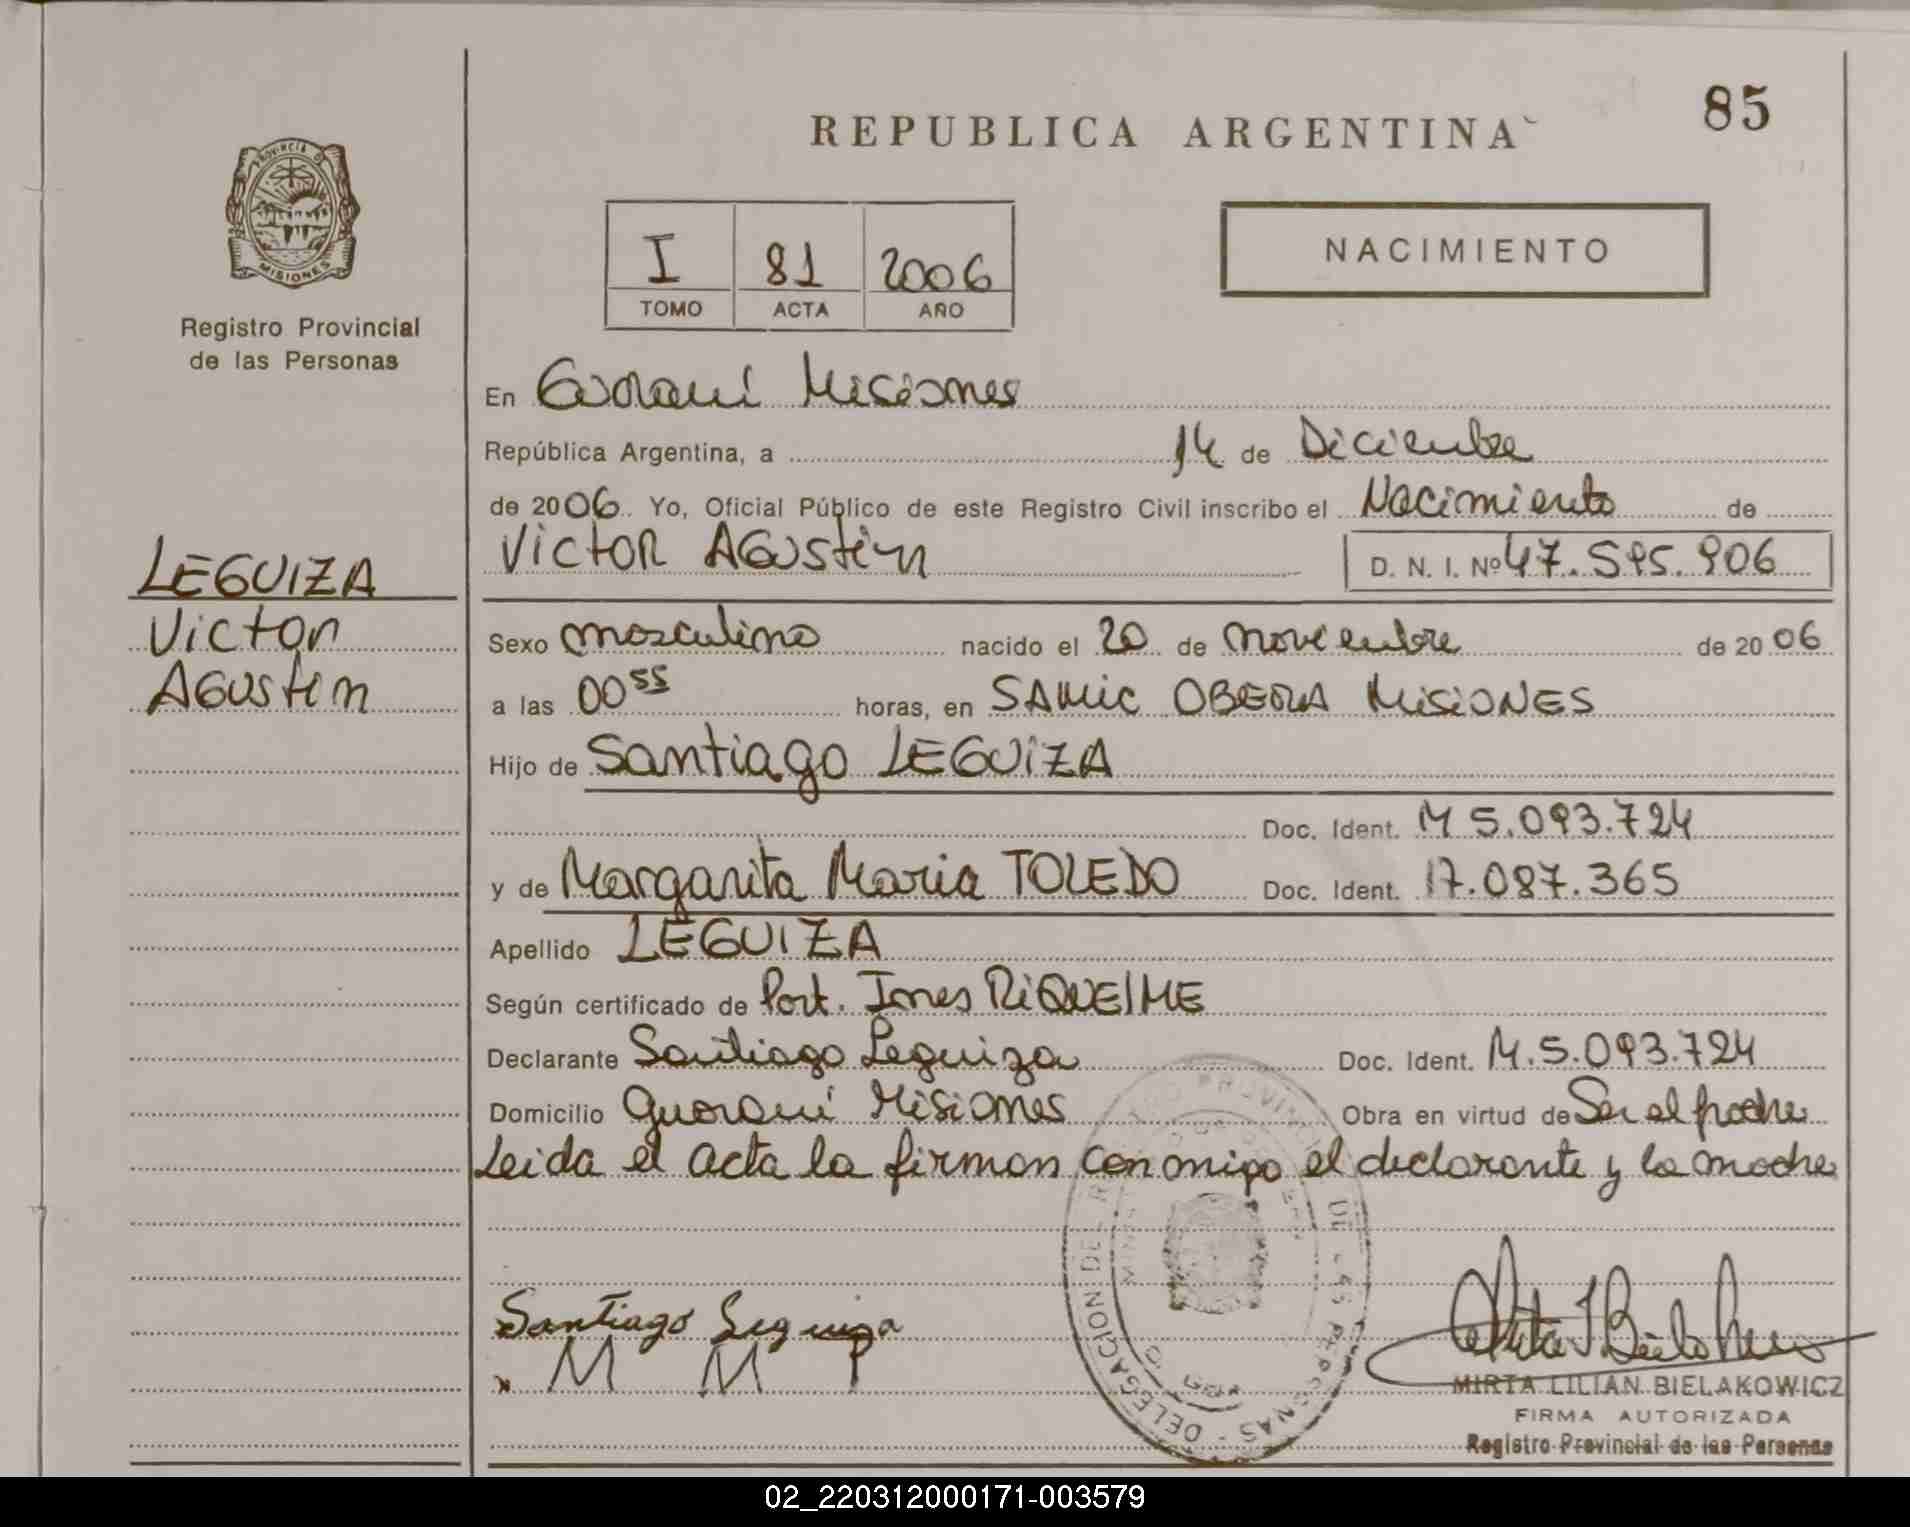 REPUBLICA ARGENTINA
85
PROVINCIA DE
MISIONES
Registro Provincial
de las Personas
I 81 2006
TOMO ACTA AÑO
NACIMIENTO
En Guarani Misiones
República Argentina, a 14 de Diciembre
de 2006 Yo, Oficial Público de este Registro Civil inscribo el Nacimiento de
VICTOR AGUStin D. N. I. Nº 47.595.906
LEGUIZA
Victor
AGUStin
Sexo masculino nacido el 20 de noviembre de 2006
a las 00 55 horas, en SAMIC OBERA MISIONES
Hijo de Santiago LEGUIZA
Doc. Ident. M 5.093.724
y de Margarita Maria TOLEDO Doc. Ident. 17.087.365
Apellido LEGUIZA
Según certificado de Part. Ines RIQUELME
Declarante Santiago Leguiza Doc. Ident. M.5.093.724
Domicilio Guarani Misiones Obra en virtud de Ser el padre
Leida el acta la firman conmigo el declarante y la madre
DELEGACION DEL REGISTRO PROVINCIAL DE LAS PERSONAS
Santiago Leguiza
x M M
MIRTA LILIAN BIELAKOWICZ
FIRMA AUTORIZADA
Registro Provincial de las Personas
02_220312000171-003579